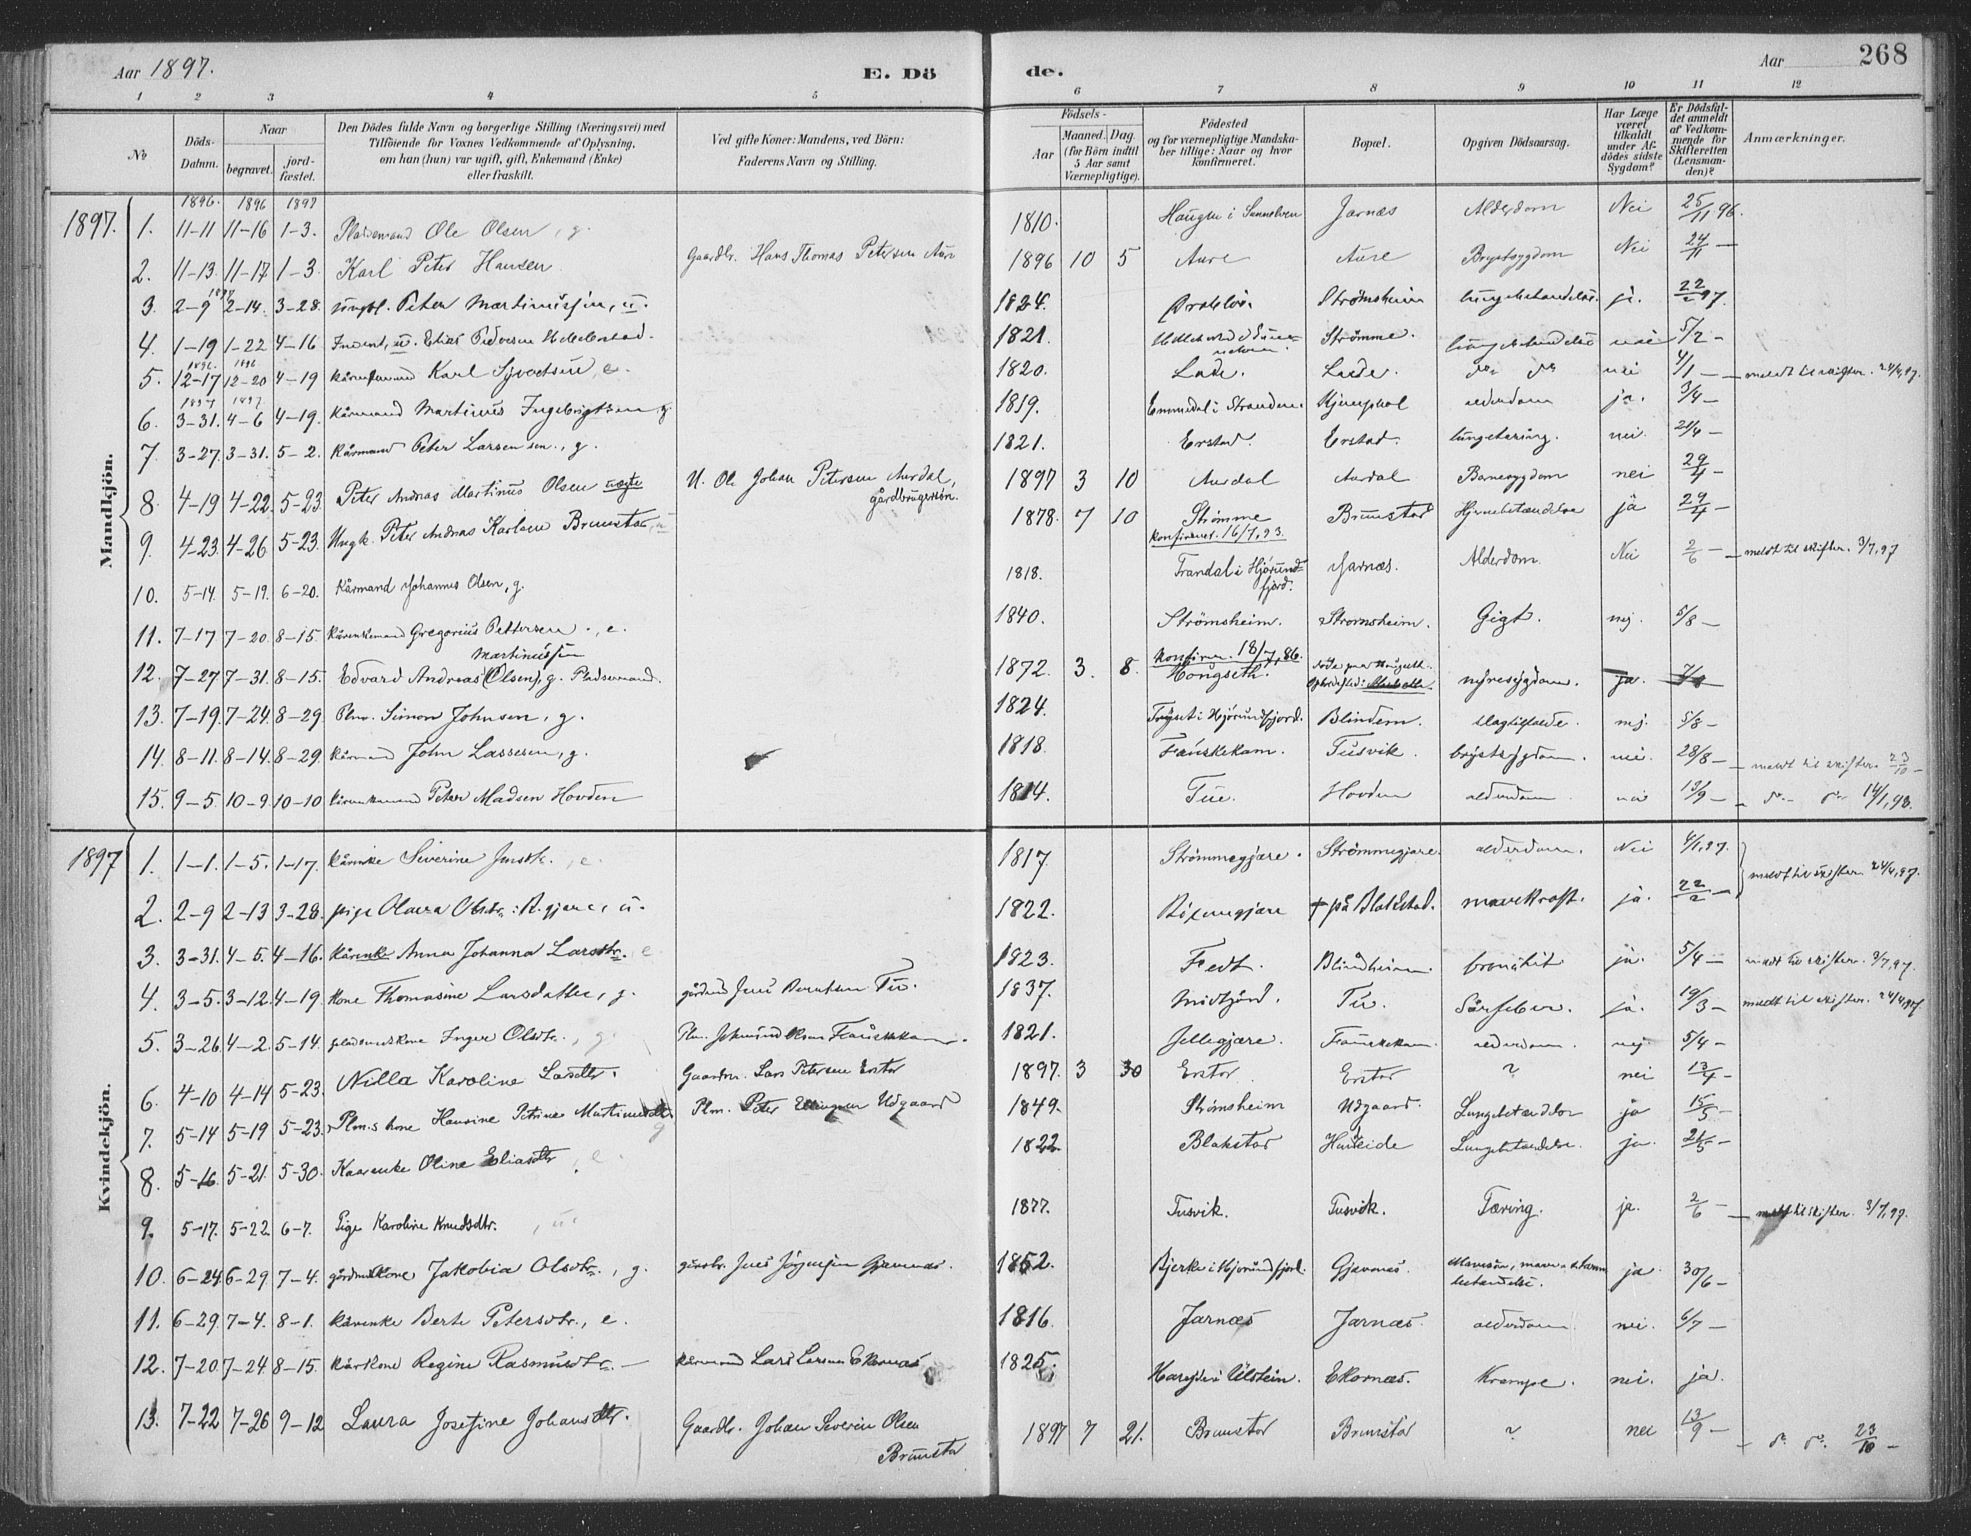 Aar 1897.
E. Dö
de.
Aar
268
1 2 3 4 5 6 7 8 9 10 11 12
No
Döds-Datum.
Naar
begravet.
jord-fæstet.
Den Dödes fulde Navn og borgerlige Stilling (Næringsvei) med Tilföiende for Voxnes Vedkommende af Oplysning, om han (hun) var ugift, gift, Enkemand (Enke) eller fraskilt.
Ved gifte Koner: Mandens, ved Börn: Faderens Navn og Stilling.
Födsels-
Aar
Maaned. Dag.
(for Börn indtil 5 Aar samt Værnepligtige).
Födested og for værnepligtige Mandskaber tillige: Naar og hvor konfirmeret.
Bopæl.
Opgiven Dödsaarsag.
Har Læge været tilkaldt under Afdödes sidste Sygdom?
Er Dödsfaldet anmeldt af Vedkommende for Skifteretten (Lensmanden)?
Anmærkninger.
Mandkjön.
1896. 1896 1897
1897. 1. 11-11 11-16 1-3. Pladsmand Ole Olsen, g. 1810. Haugen i Sunnelven Jarnæs Alderdom Nei 25/11 96.
2. 11-13. 11-17 1-3 Karl Peter Hansen Gaardbr. Hans Thomas Petersen Aure 1896 10 5 Aure Aure Brystsygdom Nei 24/11 —
1897
3. 2-9 2-14. 3-28. Peter Martinussen, u. 1824. Strømsheim lungebetændelse. ja. 22/2 97.
4. 1-19 1-22 4-16 u. Elias Pedersen 1821. Strømme. nei 5/2 -
1896. 1896
5. 12-17 12-20 4-19 kårenkemand Karl Syvertsen, e. 1820. Lade. Lade. do do nei 4/1 — meldt til skifter. 24/4,97.
1897 1897.
6. 3-31. 4-6 4-19. Kårmand Martinus Ingebrigtsen, g. 1819. Emmedal i Stranden. alderdom ja. 3/4 —
7. 3-27. 3-31. 5-2. Kårmand Peter Larsen sen., g. 1821. Erstad. Erstad. lungetæring. nei. 21/4 —
8. 4-19 4-22. 5-23. Peter Andreas Martinus Olsen uægte U. Ole Johan Petersen Aurdal, gårdbrugersøn. 1897 3 10 Aurdal Aurdal Barnesygdom nei 29/4 —
9. 4-23. 4-26 5-23. Ungk. Peter Andreas Karlsen Brunstad, u 1878. 7 10 Strømme Konfirmert. 16/7, 93. Brunstad Hjernebetændelse ja 29/4 —
10. 5-14 5-19. 6-20. Kårmand Johannes Olsen, g. 1818. Trandal i Hjørundfjord. Jarnæs. Alderdom. Nei 2/6 — meldt til skifter. 3/7,97
11. 7-17 7-20. 8-15. Kårenkemand Gregorius Pettersen, e. 1840. Strömsheim. Stromsheim. Gigt. nej. 5/8 —
Martinussen
12. 7-27 7-31. 8-15. Edvard Andreas (Olsen), g. Pladsemand. 1872. 3. 8. konfirm. 18/7,86. nyresygdom. ja.
13. 7-19. 7-24. 8-29. Plm. Simon Johnsen, g. 1824. i Hjørundfjord. Blindem. slagtilfælde. nej. 5/8 —
14. 8-11. 8-14. 8-29. kårmand John Lassesen, g. 1818. Fauskekam. Tusvik. brystsygdom. nei. 28/8 — meldt til skifter. 23/10 —
15. 9-5. 10-9. 10-10 kårenkemand Peter Madsen Hovden 1814. Tue. Hovden alderdom nei 13/9 — do do 14/1,98.
Kvindekjön.
1897 1. 1-1. 1-5. 1-17. kårenke Severine Jensdtr., e. 1817. Strömmegjære. Strömmegjære. alderdom. Nei 4/1,97.
meldt til skifter. 24/4,97.
2. 2-9 2-13 3-28. pige Olava Olsdtr., u. 1822. + på Blakstad. mavekræft. ja. 22/2 —
3. 3-31. 4-5. 4-16. kårenke Anna Johanna Larsdtr., e 1823. Fedt. Blindheim bronchit ja. 5/4 — meldt til skifter. 3/7,97.
4. 3-5. 3-12. 4-19. kone Thomasine Larsdatter, g. gårdmd Jens Berntsen Tu. 1837. Midtgård. Tu. Sårfeber. ja. 19/3 — meldt til skifter. 24/4,97.
5. 3-26. 4-2. 5-14. pladsmandskone Inger Olsdtr., g. Plm. 1821. Jellegjære. Fauskekam. alderdom. nej. 5/4 —
6. 4-10 4-14 5-23. Nilla Karoline Larsdtr. Gaardm. Lars Petersen Erstad 1897. 3 30 Erstad Erstad ? nei 13/4 —
7. 5-14 5-19 5-23. Plm.s kone Hansine Petrine Martinusdtr g Plm. Peter Ellingsen Udgaard 1849. Strømsheim Udgaard. Lungebetændelse ja 15/5 —
8. 5-16. 5-21. 5-30. Kaarenke Oline Eliasdtr, e. 1822. Blakstad Lungebetændelse. ja. 21/5 —
9. 5-17. 5-22 6-7. Pige Karoline Knudsdtr., u. 1877. Tusvik. Tusvik. Tæring. ja. 2/6 — meldt til skifter. 3/7,97.
10. 6-24. 6-29 7-4. gårdmdskone Jakobia Olsdtr., g. gårdbr. Jens Jörgensen Gjævenæs. 1852. Bjerke i Hjörundfjord. Gjævenæs. ja 30/6 —
11. 6-29. 7-4. 8-1. kårenke Berte Petersdtr., e. 1816. Jarnæs Jarnæs. alderdom nei. 6/7 —
12. 7-20. 7-24 8-15. kårkone Regine Rasmusdtr. — kårmand Lars Larsen Ekornæs 1825. Hareide i Ulstein. Ekornæs. Krampe. nei. ja.
13. 7-22 7-26 9-12 Laura Josefine Johansdtr. Gaardbr. Johan Severin Olsen Brunstad 1897 7 21. Brunstad Brunstad ? nei 13/9 — do do 23/10 —